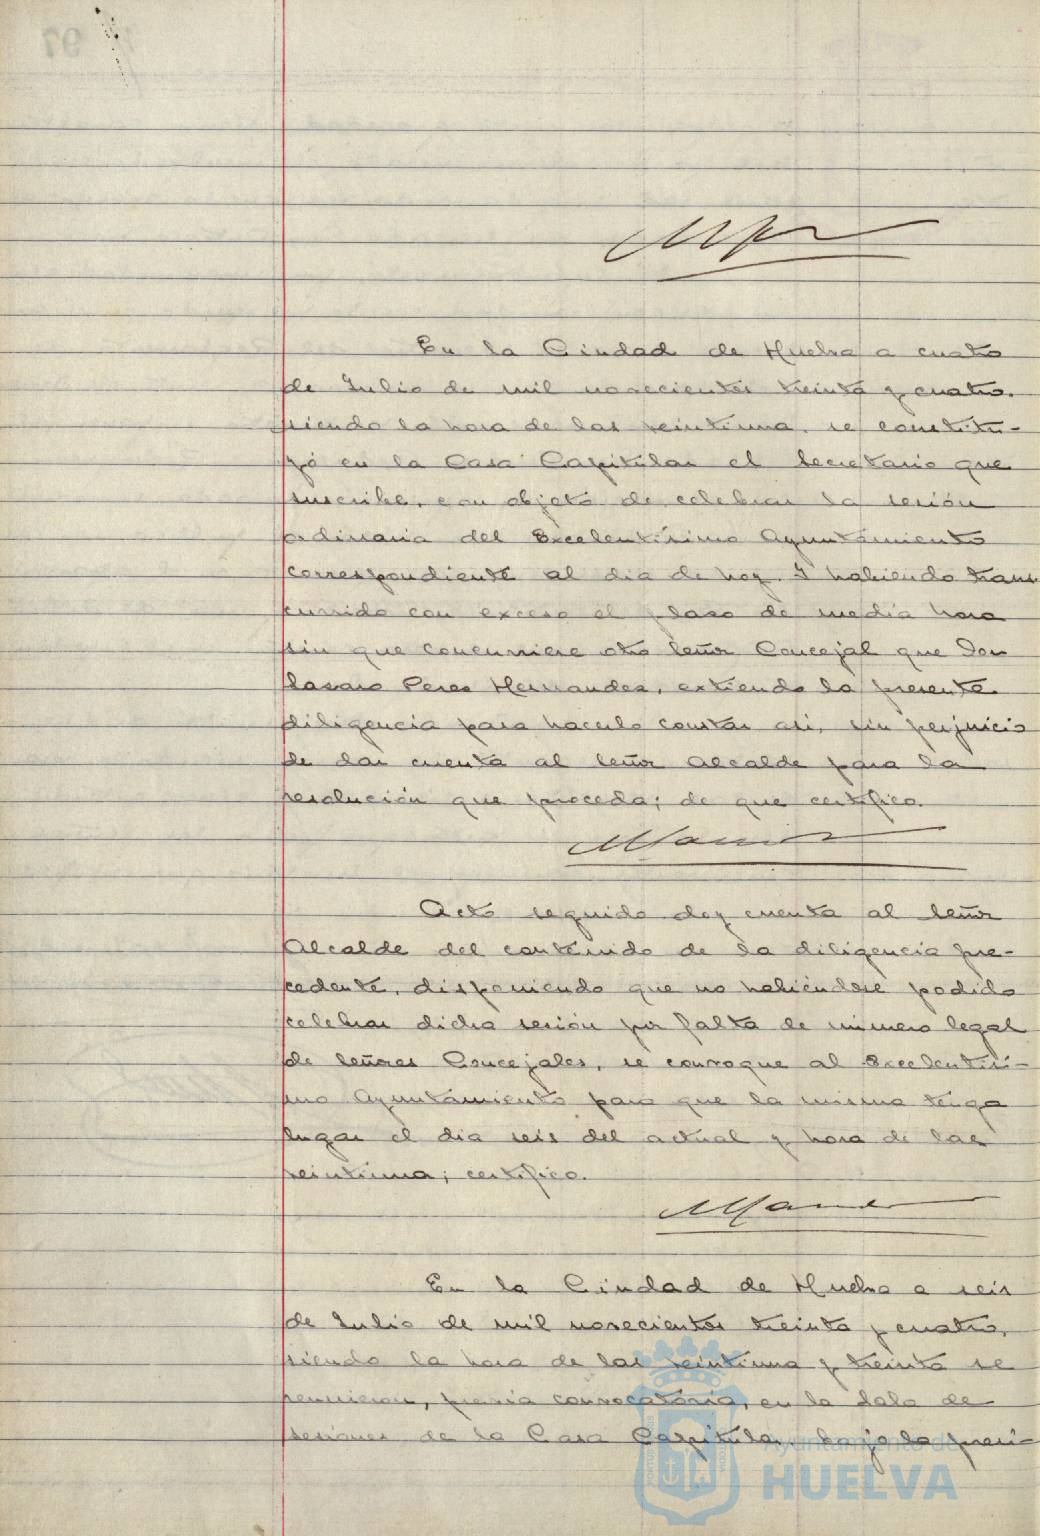 En la Ciudad de Huelva a cuatro
de Julio de mil novecientos treinta y cuatro.
siendo la hora de las veintiuna, se constitu-
yó en la Casa Capitular el Secretario que
suscribe, con objeto de celebrar la sesión
ordinaria del Excelentísimo Ayuntamiento
correspondiente al dia de hoy. Y habiendo trans
currido con exceso el plazo de media hora
sin que concurriere otro Señor Concejal que Don
Perez Hernandez, extiendo la presente
diligencia para hacerlo constar asi, sin perjuicio
de dar cuenta al Señor Alcalde para la
resolución que proceda; de que certifico.
Acto seguido doy cuenta al Señor
Alcalde del contenido de la diligencia pre-
cedente, disponiendo que no habiéndose podido
celebrar dicha sesión por falta de número legal
de Señores Concejales, se convoque al Excelentísi-
mo Ayuntamiento para que la misma tenga
lugar el dia seis del actual y hora de las
veintiuna; certifico.
En la Ciudad de Huelva a seis
de Julio de mil novecientos treinta y cuatro,
siendo la hora de las veintiuna y treinta se
reunieron, previa convocatoria, en la Sala de
sesiones de la Casa Capitular bajo la presi-
Ayuntamiento de
HUELVA